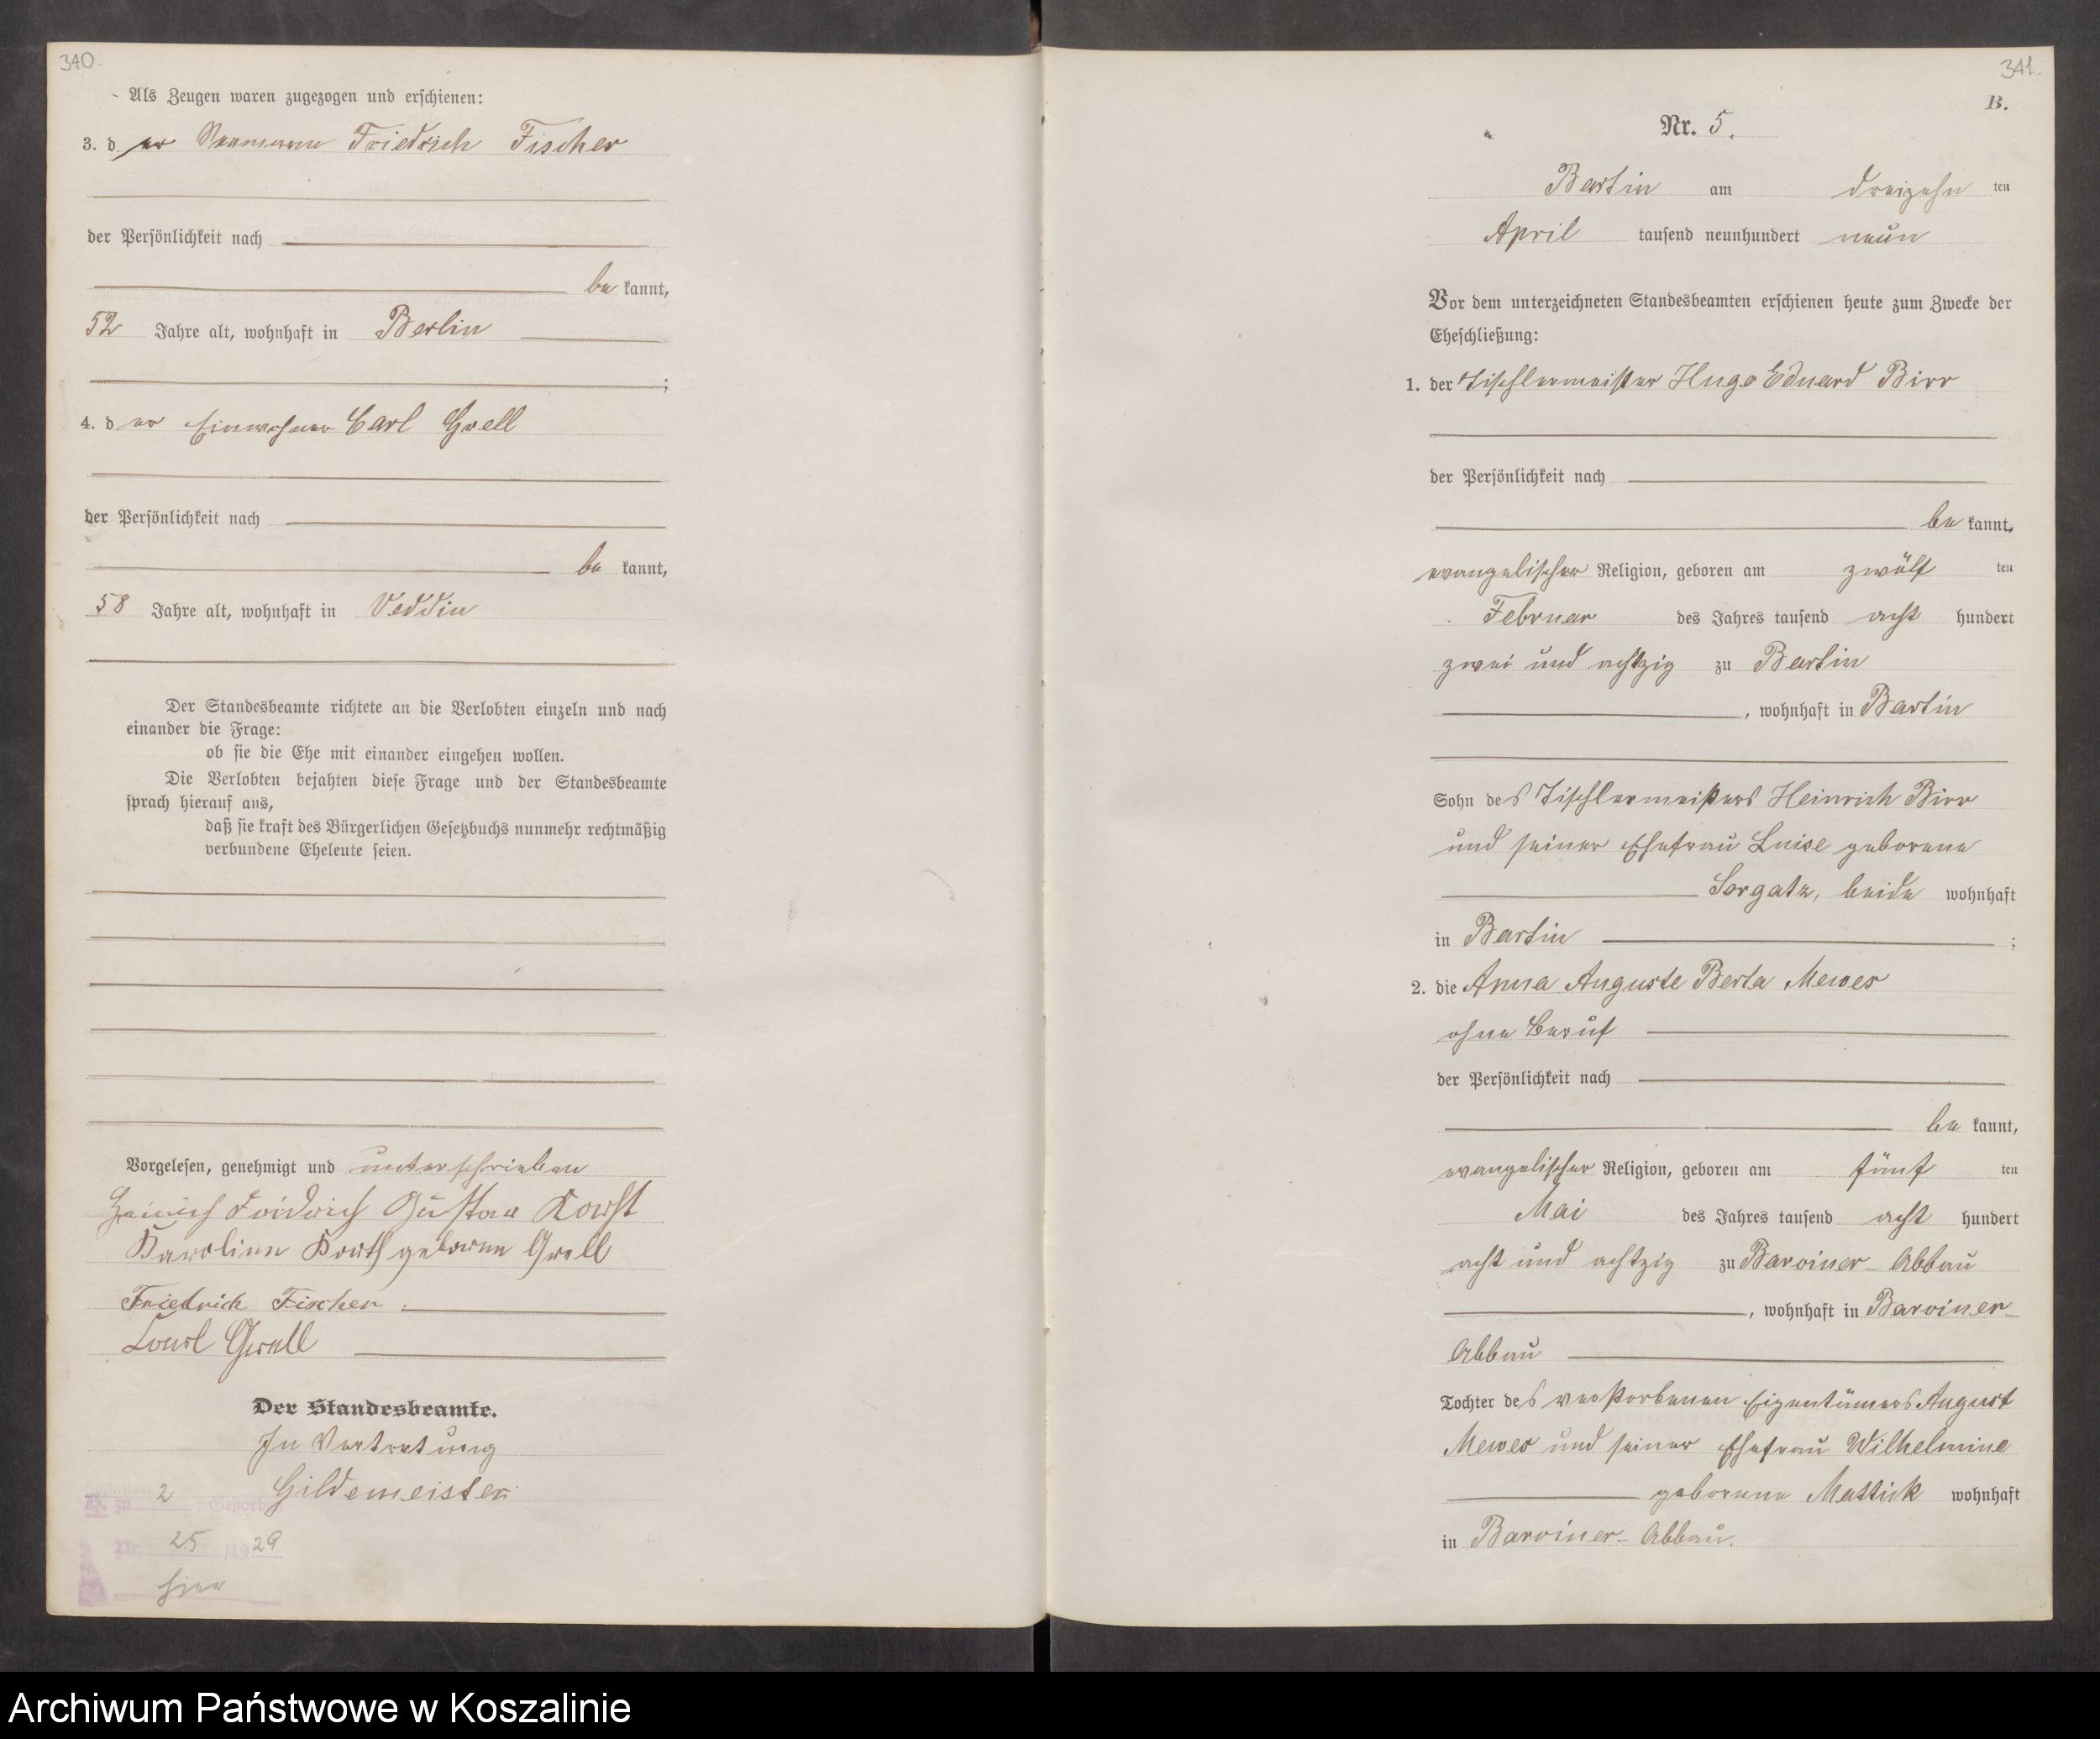 340.
Als Zeugen waren zugezogen und erschienen:
3. der Friedrich Fischer
der Persönlichkeit nach
be kannt,
52 Jahre alt, wohnhaft in Berlin
;
4. der Einwohner Carl Grell
der Persönlichkeit nach
be kannt,
58 Jahre alt, wohnhaft in Veddin
Der Standesbeamte richtete an die Verlobten einzeln und nach
einander die Frage:
ob sie die Ehe mit einander eingehen wollen.
Die Verlobten bejahten diese Frage und der Standesbeamte
sprach hierauf aus,
daß sie kraft des Bürgerlichen Gesetzbuchs nunmehr rechtmäßig
verbundene Eheleute seien.
Vorgelesen, genehmigt und unterschrieben
Heinrich Friedrich Gustav
Karoline geborene Grell
Friedrich Fischer.
Grell
Der Standesbeamte.
In Vertretung
Gildemeister
zu 2 : Gestorben
Nr. 25 /19 29
hier
341.
B.
Nr. 5.
Bartin am dreizehn ten
April tausend neunhundert neun
Vor dem unterzeichneten Standesbeamten erschienen heute zum Zwecke der
Eheschließung:
1. der Tischlermeister Hugo Eduard Birr
der Persönlichkeit nach
be kannt,
evangelischer Religion, geboren am zwölf ten
Februar des Jahres tausend acht hundert
zwei und achtzig zu Bartin
, wohnhaft in Bartin
Sohn des Tischlermeisters Heinrich Birr
und seiner Ehefrau Luise geborene
Sorgatz, beide wohnhaft
in Bartin ;
2. die Anna Auguste Berta Mewes
ohne Beruf
der Persönlichkeit nach
be kannt,
evangelischer Religion, geboren am fünf ten
Mai des Jahres tausend acht hundert
acht und achtzig zu Barviner-Abbau
, wohnhaft in Barviner-
Abbau
Tochter des verstorbenen Eigentümers August
Mewes und seiner Ehefrau Wilhelmine
geborene wohnhaft
in Barviner-Abbau.
Archiwum Państwowe w Koszalinie